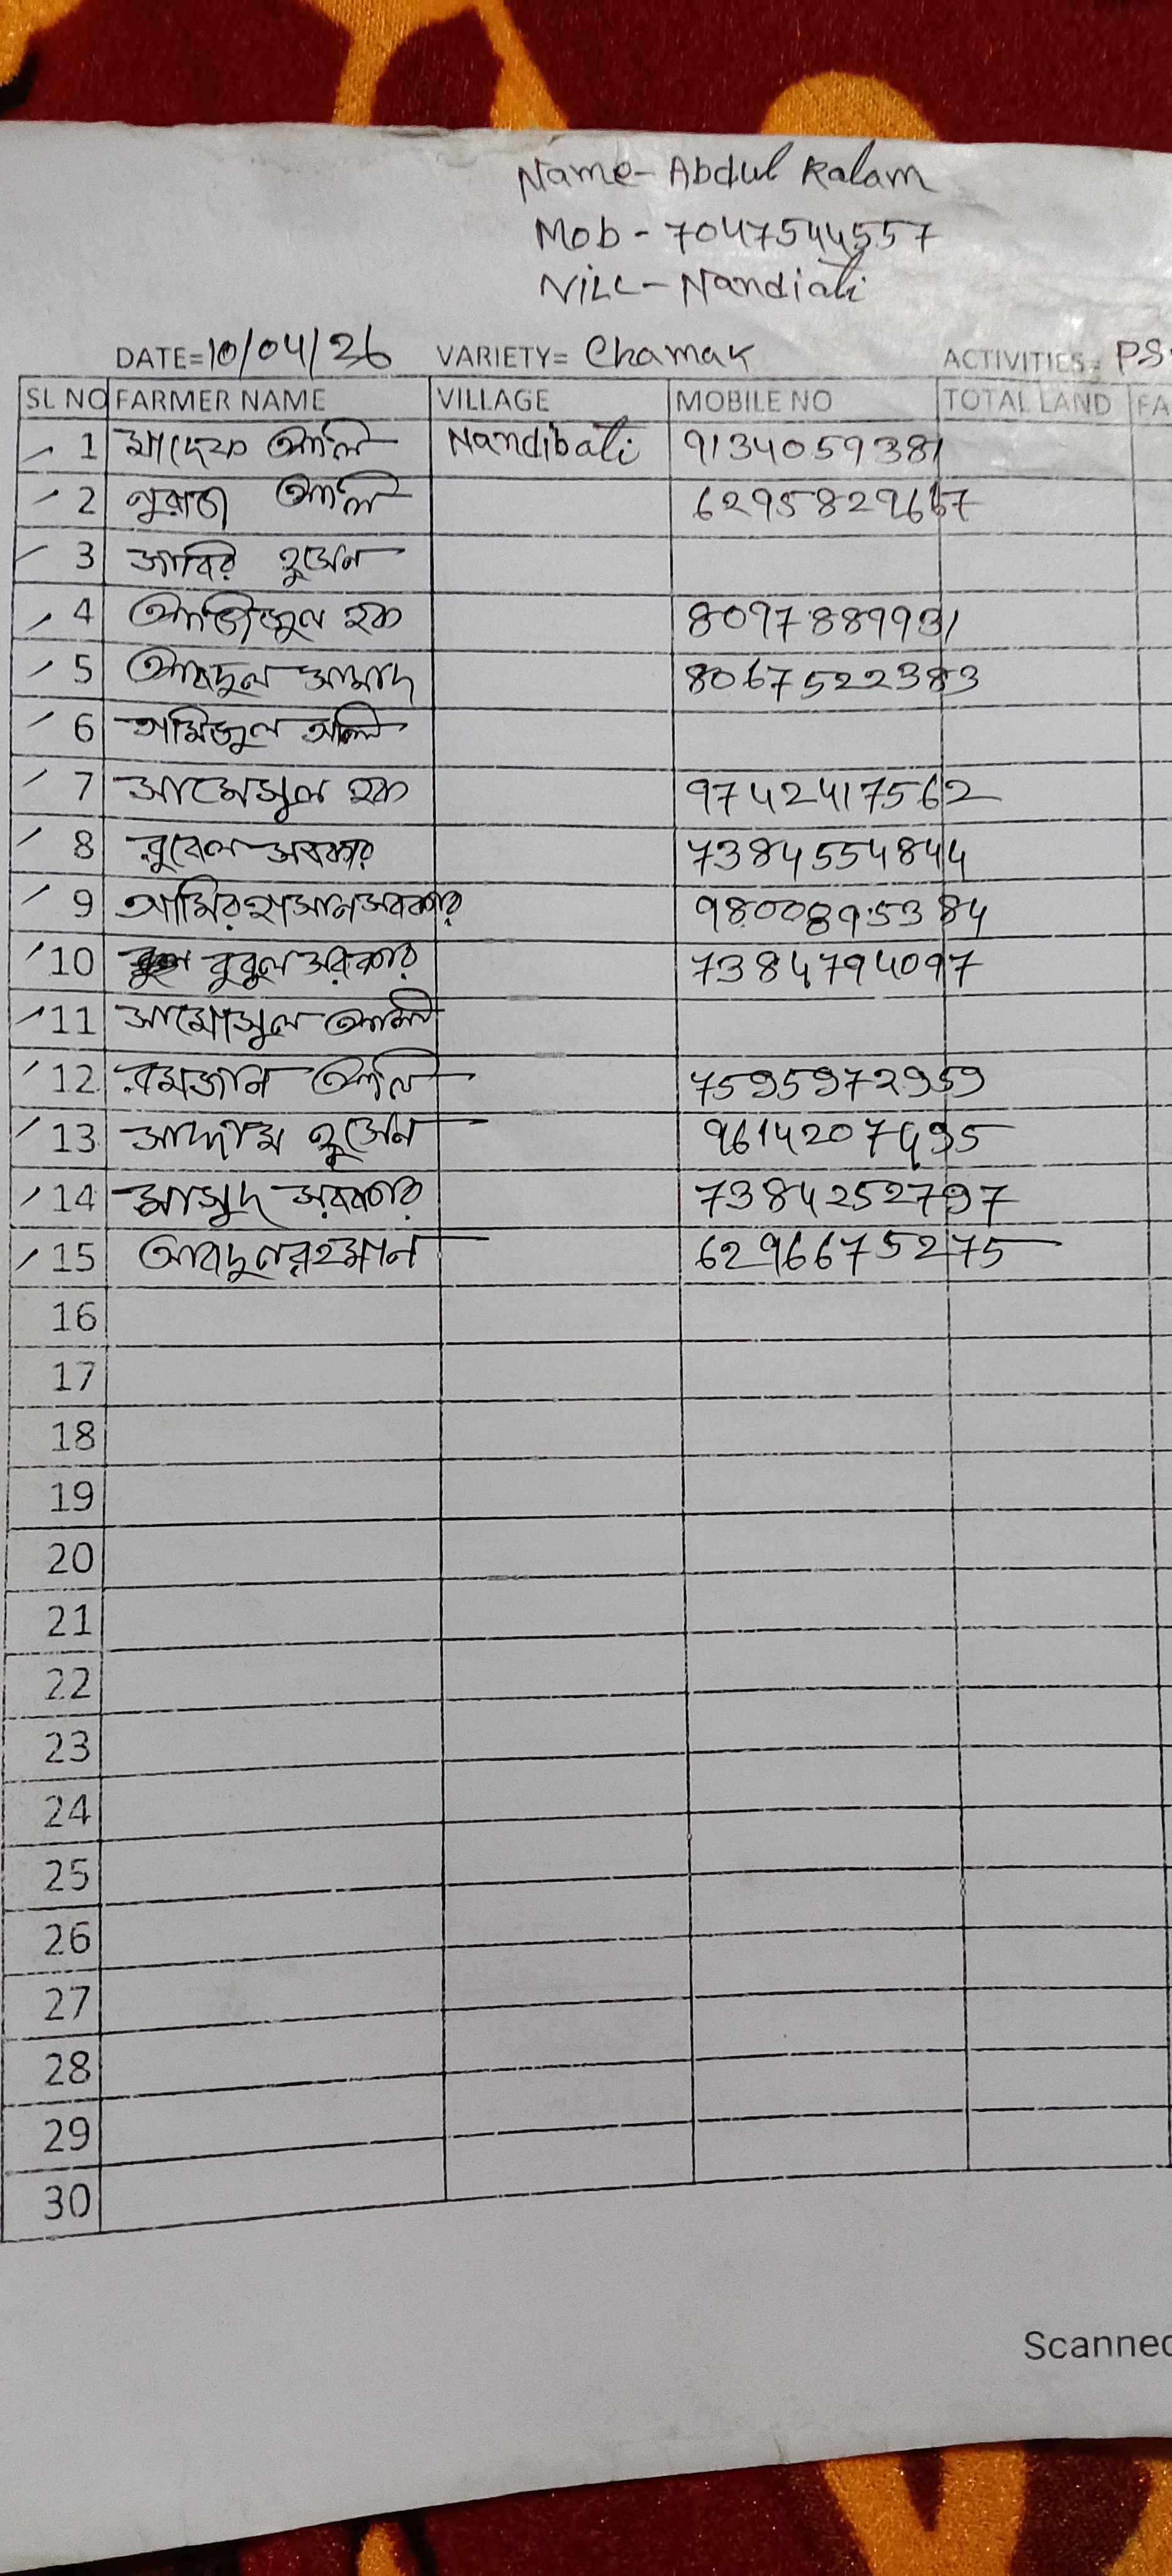 Name- Abdul Kalam
Mob - 7047544557
Vill - Nandiali
DATE=10/04/26 VARIETY= Chamak ACTIVITIES= PS
SL NO FARMER NAME VILLAGE MOBILE NO TOTAL LAND FA
1 আলি Nandibali 9134059381
2 আলি 6295829667
3 জাবির হুসেন
4 আজিজুল হক 8097889931
5 আবদুল সামাদ 8067522383
6 অমিজুল অলি
7 সামেসুল হক 9742417562
8 রুবেল সরকার 7384554844
9 আমির হাসান সরকার 9800895384
10 বুবুল সরকার 7384794097
11 সামোসুল আলী
12 রমজান আলি 7595972959
13 সাদ্দাম হুসেন 9614207495
14 মাসুদ সরকার 7384252797
15 আবদুলরহমান 6296675275
16
17
18
19
20
21
22
23
24
25
26
27
28
29
30
Scanned